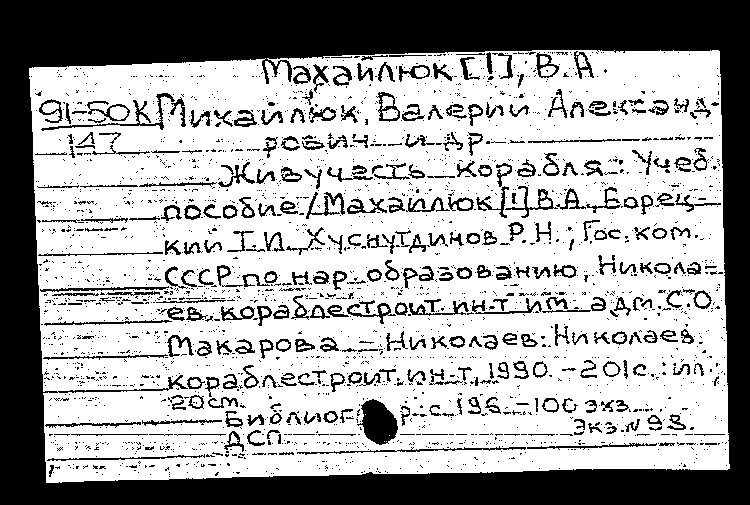 Махайлюк [!], В.А.
91-50К Михайлюк, Валерий Александ-
147 рович и др.
Живучесть корабля: Учеб.
пособие / Махайлюк [!] В.А., Борец-
кий Т.И., Хуснутдинов Р.Н.; Гос. ком.
СССР по нар. образованию, Никола-
ев. кораблестроит. ин-т им. адм. С.О.
Макарова. - Николаев: Николаев.
кораблестроит. ин-т, 1990. - 201с.: ил.;
20см.
Библиогр.: с. 196. - 100 экз.
ДСП Экз. N 93.